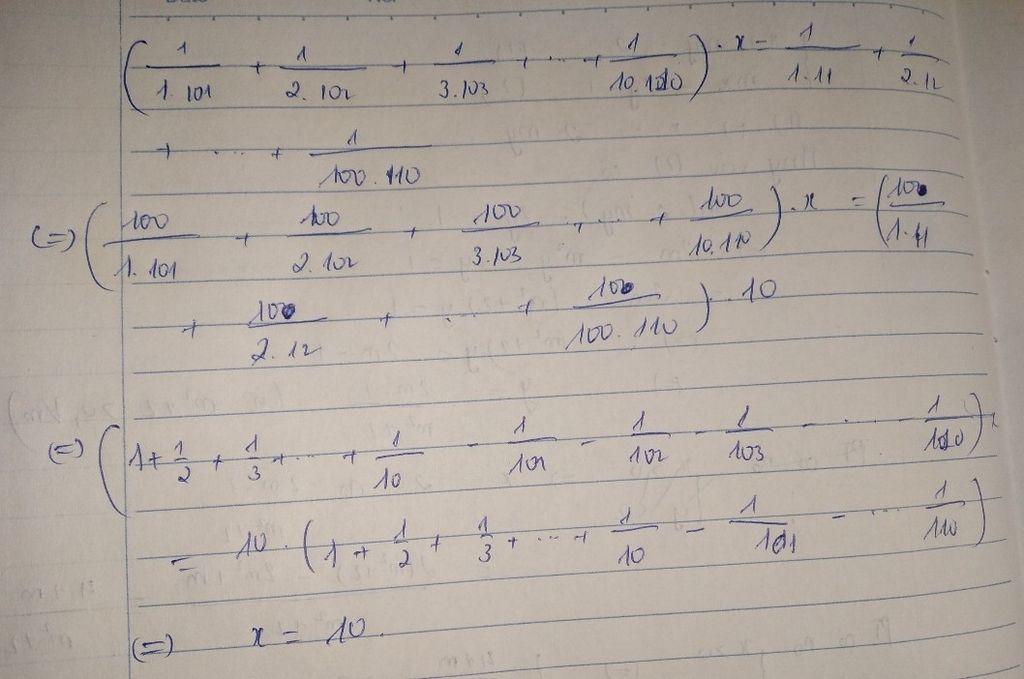 (1/1.101 + 1/2.102 + 1/3.103 + ... + 1/10.110) . x = 1/1.11 + 1/2.12
+ ... + 1/100.110
(=) (100/1.101 + 100/2.102 + 100/3.103 + ... + 100/10.110) . x = (100/1.11
+ 100/2.12 + ... + 100/100.110) . 10
(=) (1 + 1/2 + 1/3 + ... + 1/10 - 1/101 - 1/102 - 1/103 - ... 1/110) x
= 10 . (1 + 1/2 + 1/3 + ... + 1/10 - 1/101 - ... 1/110)
(=) x = 10.